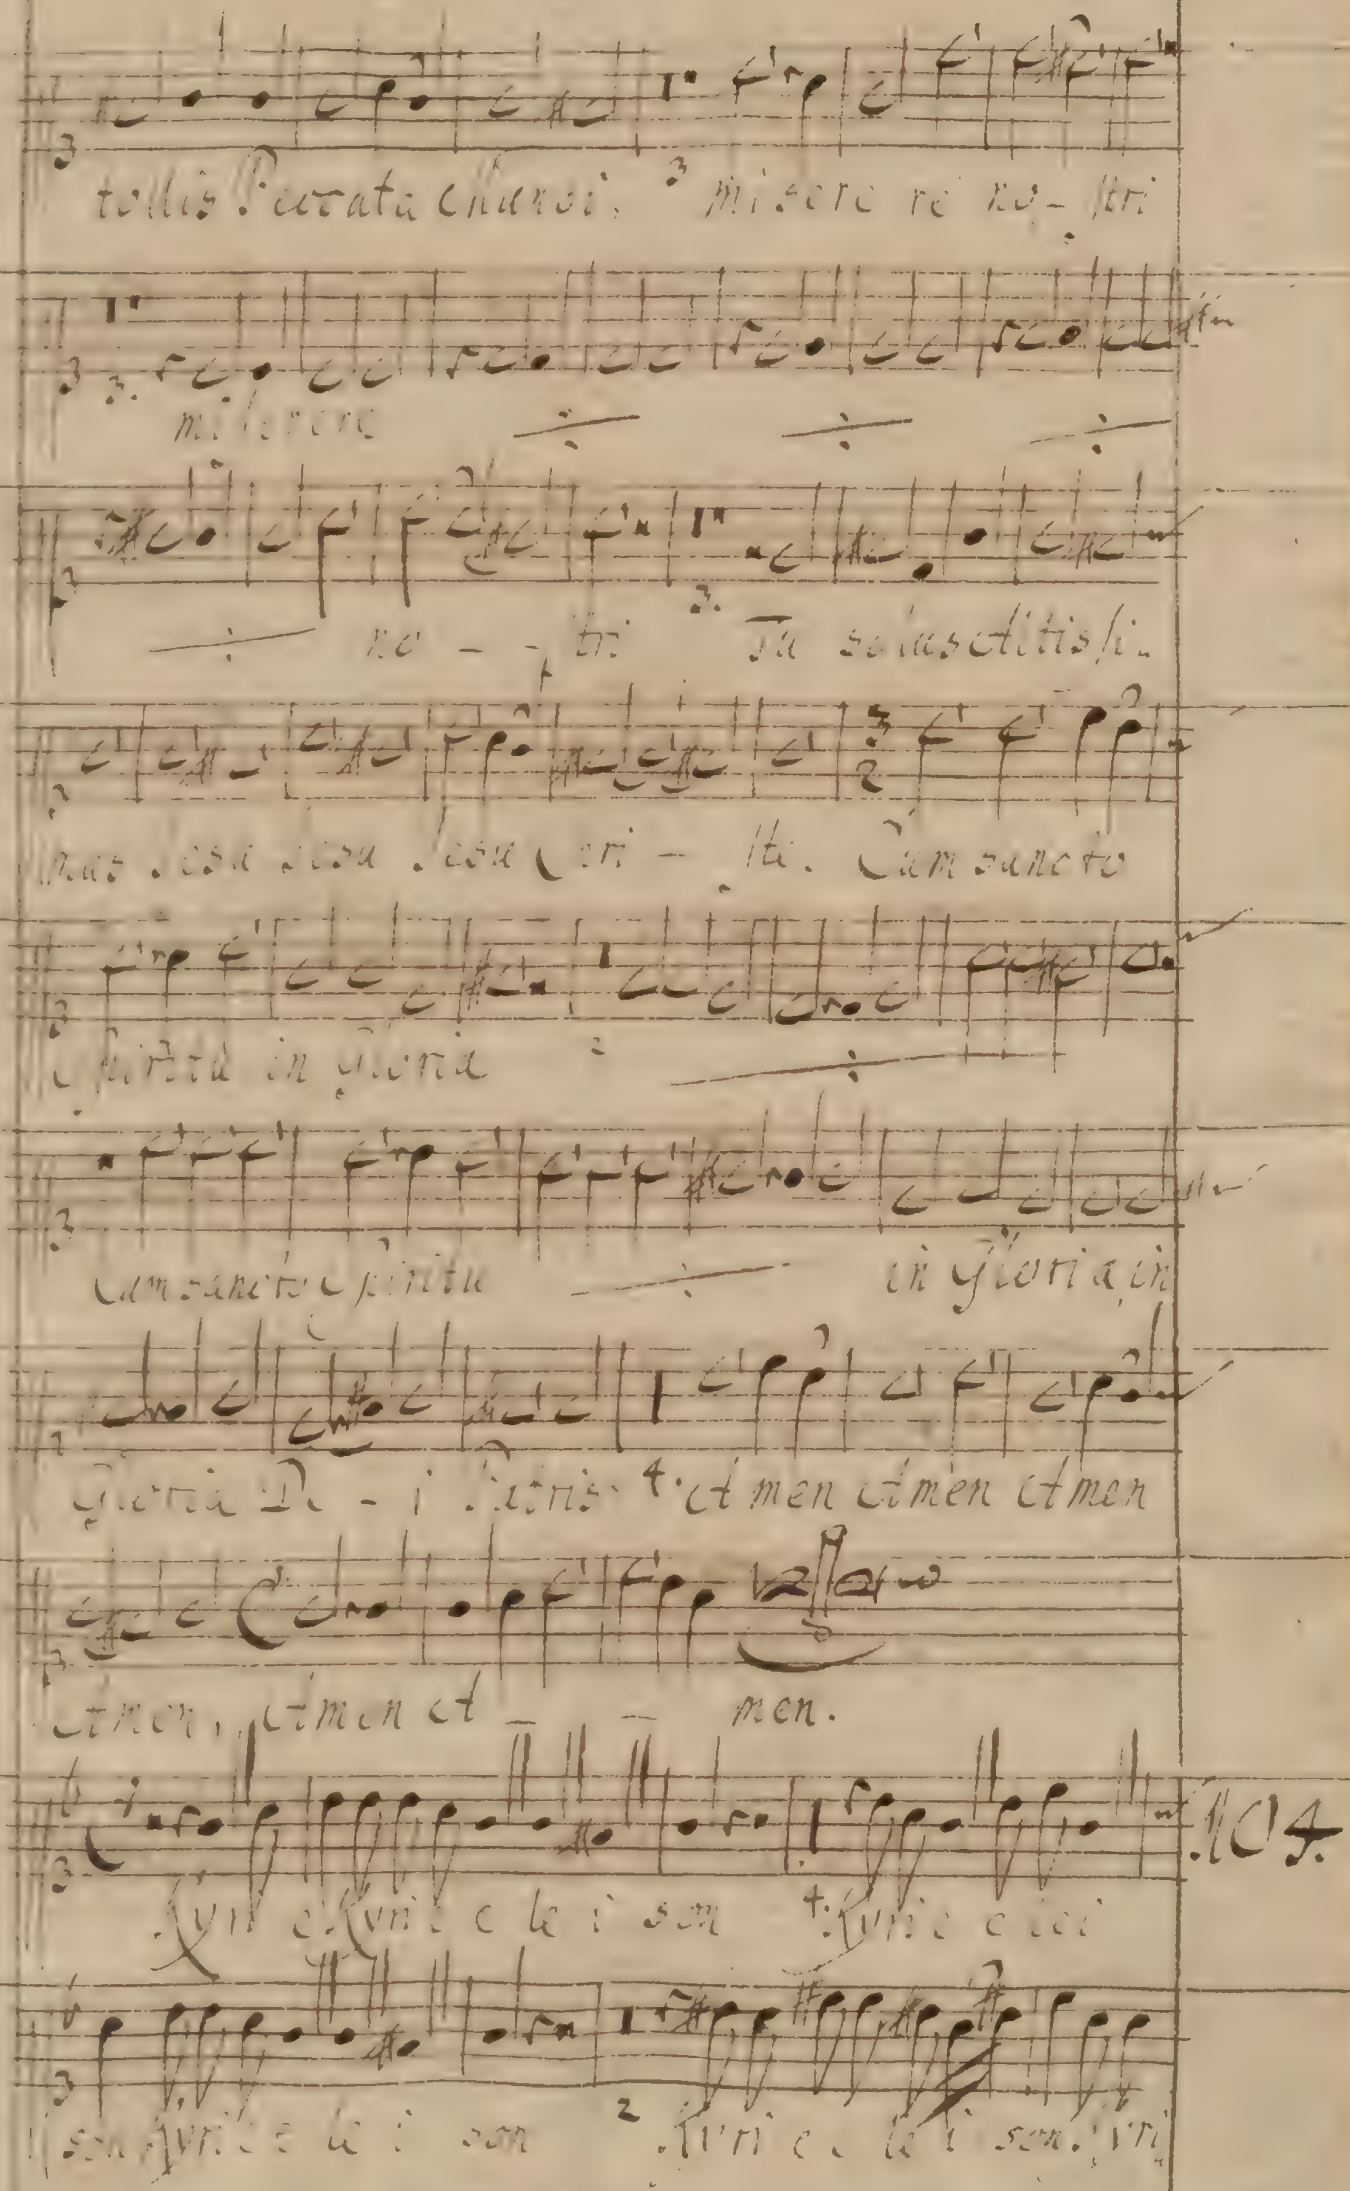 tollis Peccata Mundi, 3 misere re no - stri
3. miserere
no - - stri 3. Tu solus Altissi-
mus Jesu Jesu Jesu Cri - ste. Cum sancto
Spiritu in Gloria 2
Cum sancto Spiritu in Gloria, in
Gloria De - i Patris 4. Amen Amen Amen
Amen, Amen A - - men.
104.
Kyri e Kyri e le i son 4. Kyrie e lei
son Kyri e e le i son 2 Kyri e e le i son. Kyri